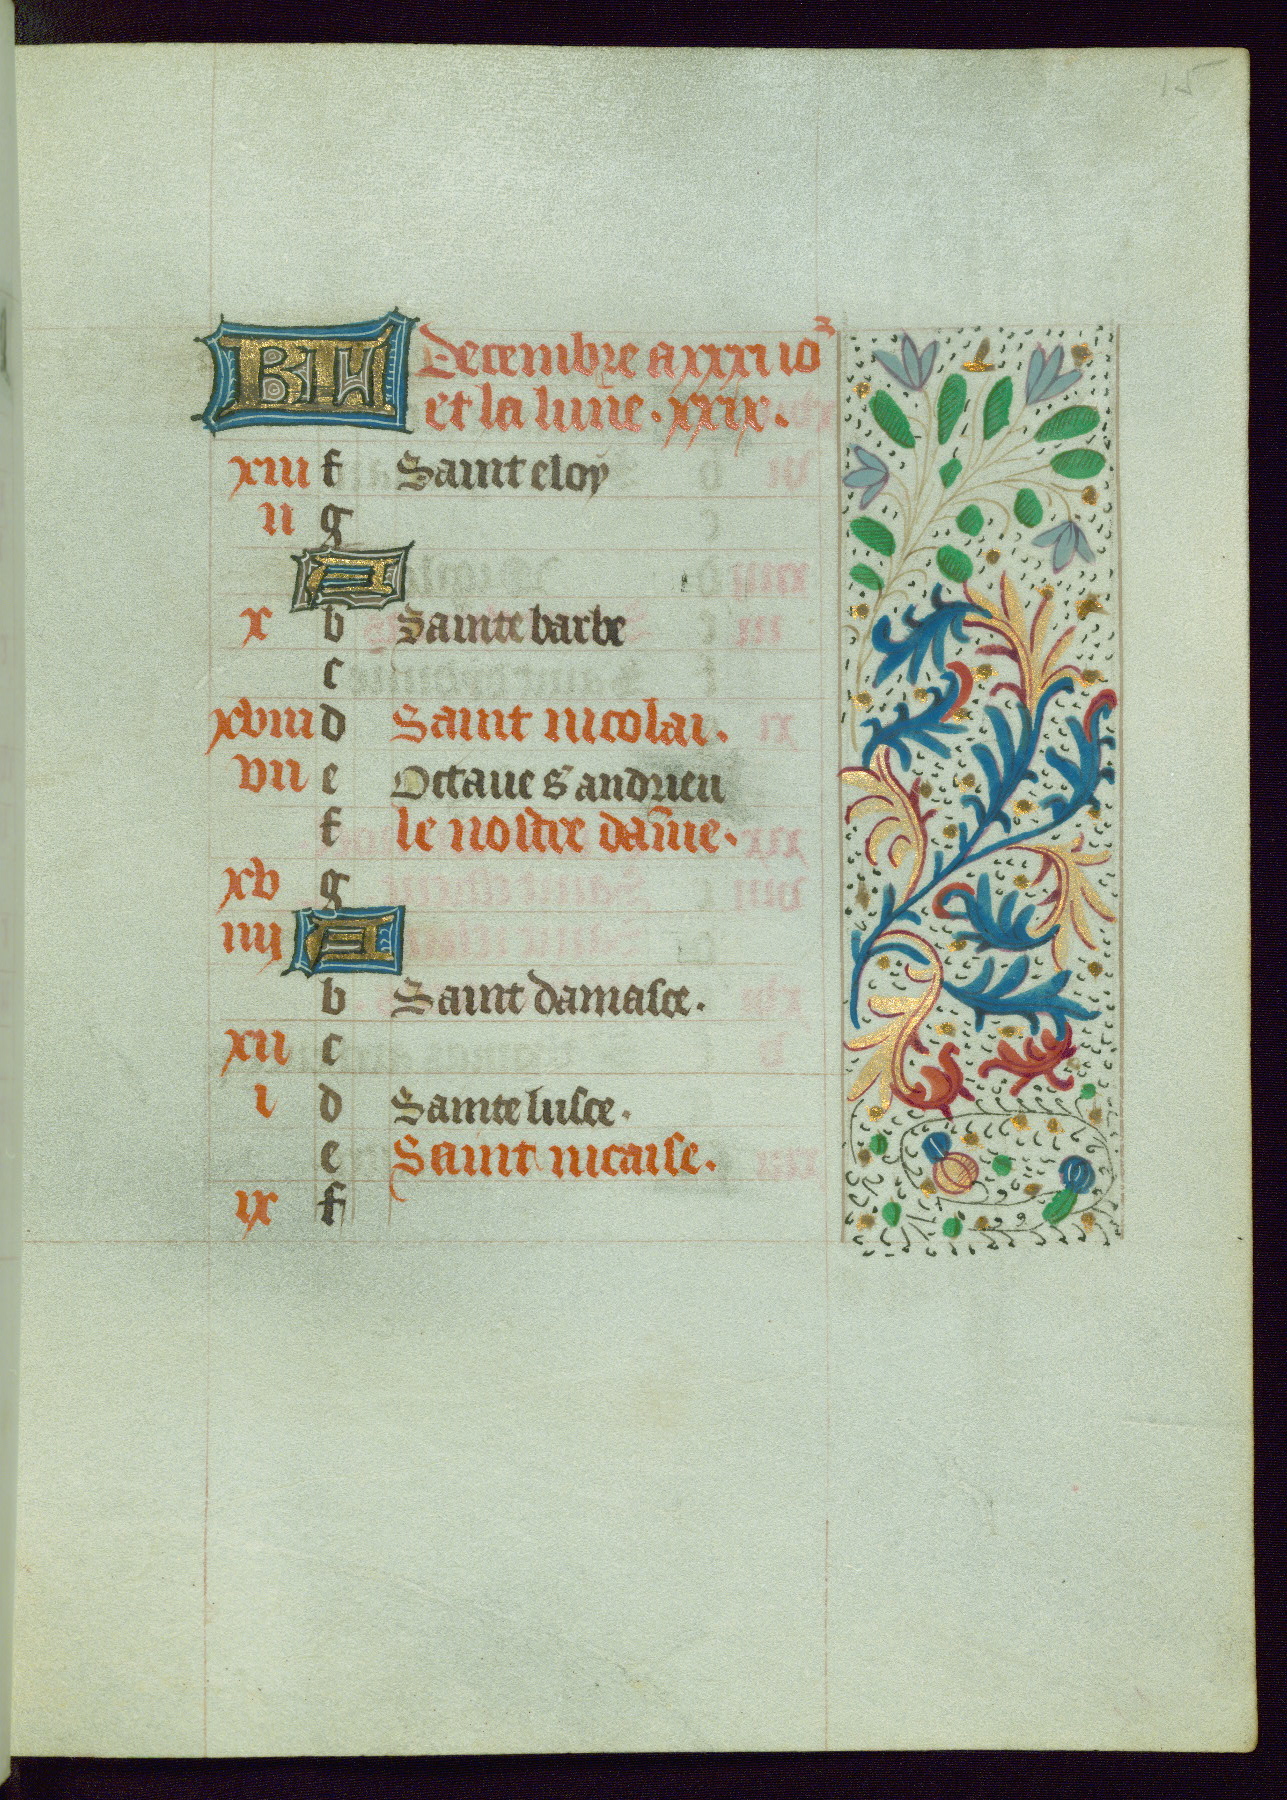 15
KL Decembre a xxxi io⁹
et la lune . xxix .
xiii f Saint eloy
ii g
A
x b Sainte barbe
c
xviii d Saint nicolai .
vii e Octaue s' andrieu
f le nostre dame .
xv g
iiii A
b Saint damasce .
xii c
i d Sainte lusce .
e Saint nicaise .
ix f